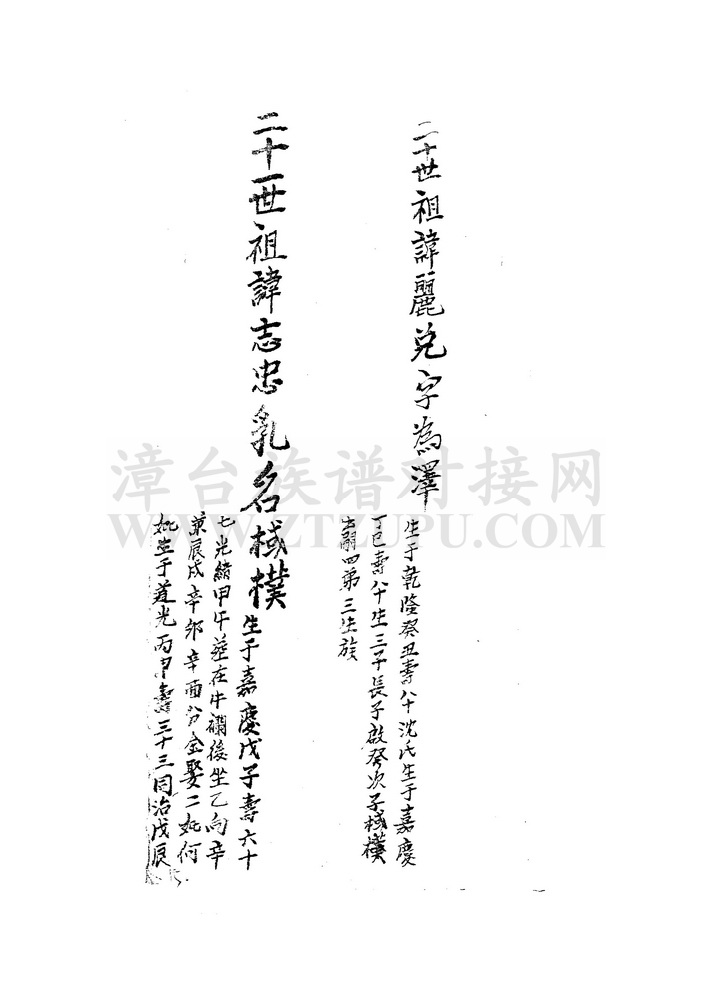 二十世祖諱麗兌字為澤
生于乾隆癸丑壽八十沈氏生于嘉慶
丁巳壽八十生三子長子啟發次子棫樸
出嗣四弟三生族
二十一世祖諱志忠乳名棫樸
生于嘉慶戊子壽六十
七光緒甲午葬在牛磵後坐乙向辛
兼辰戌辛卯辛酉分金娶二妣何
妣生于道光丙申壽三十三同治戊辰
漳台族谱对接网
WWW.ZTZUPU.COM